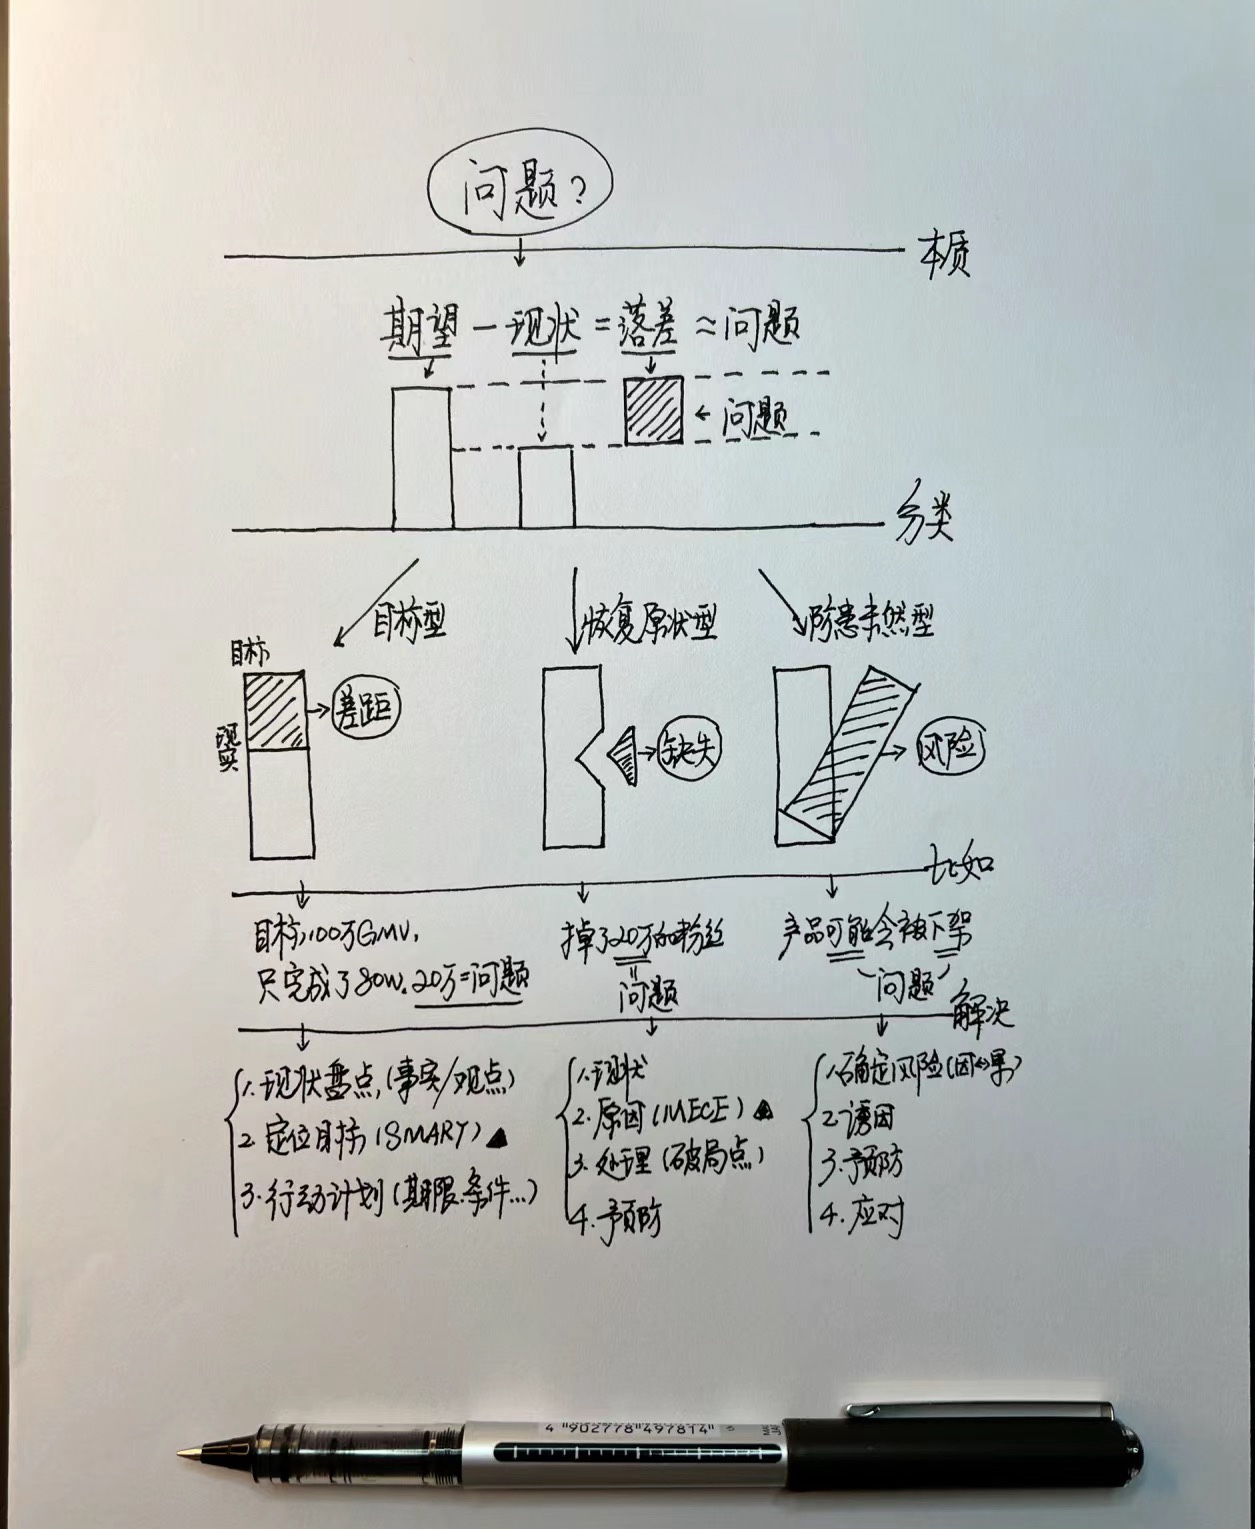 问题?
本质
期望-现状=落差≈问题
←问题
分类
目标型
恢复原状型
防患未然型
目标
现实
差距
缺失
风险
比如
目标100万GMV,
只完成了80W.20万=问题
掉了20万的粉丝
=
问题
产品可能会被下架
问题
解决
1.现状盘点,(事实/观点)
2.定位目标(SMARY)▲
3.行动计划(期限.条件...)
1.现状
2.原因(MECE)▲
3.处理(破局点)
4.预防
1.确定风险(因↔果)
2.诱因
3.预防
4.应对
4 "902778"497814"